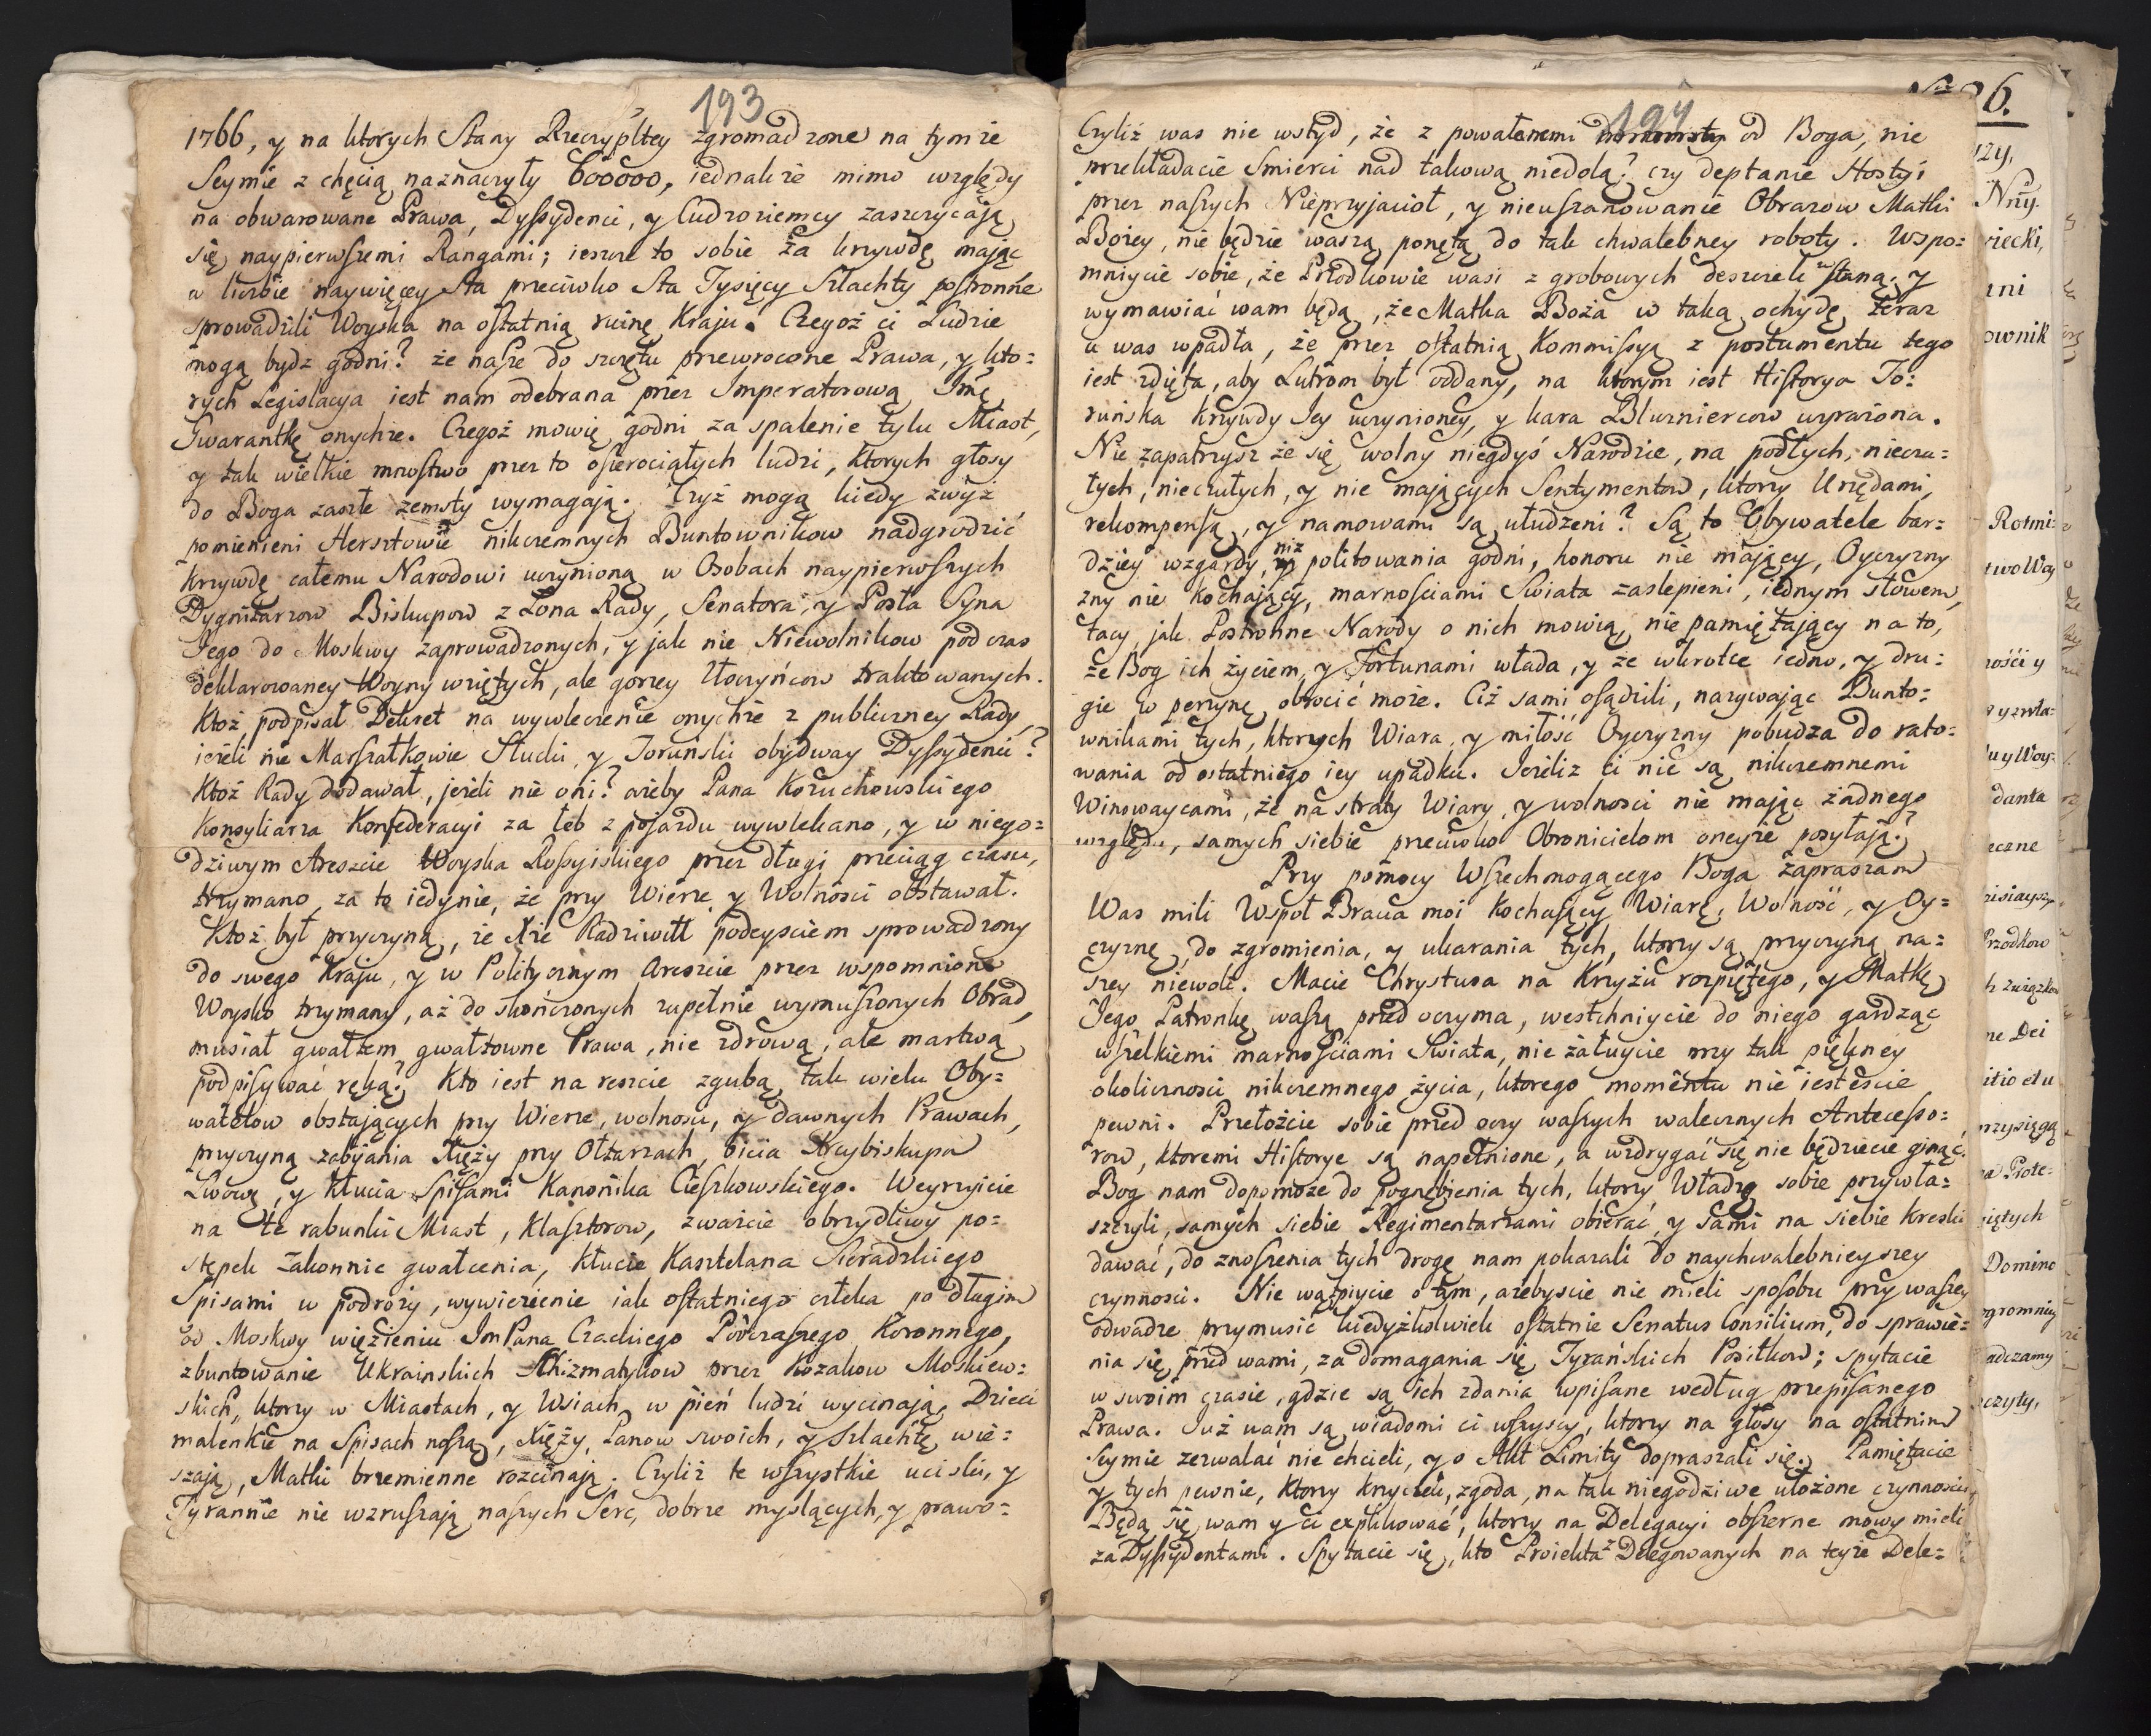 193
1766, y na ktorych Stany Rzeczypltey zgromadzone na tymże
Seymie z chęcią naznaczyły 600000, iednakże mimo względy
na obwarowane Prawa, Dyssydenci, y Cudzoziemcy zaszczycaią
się naypierwszemi Rangami; ieszcze to sobie za krzywdę maiąc
w liczbie naywięcey Sta przeciwko Sta Tysięcy Szlachty postronne
sprowadzili Woyska na ostatnią ruinę Kraju. Czegoż ci Ludzie
mogą bydz godni? że nasze do szczętu przewrocone Prawa, y kto=
rych Legislacya iest nam odebrana przez Imperatorową Jmć
Gwarantkę onychże. Czegoż mowię godni za spalenie tylu Miast,
y tak wielkie mnostwo przez to osierociałych ludzi, ktorych głosy
do Boga zaszłe zemsty wymagaią. Czyż mogą kiedy zwyż
pomienieni Hersztowie nikczemnych Buntownikow nadgrodzić
krzywdę całemu Narodowi uczynioną w Osobach naypierwszych
Dygnitarzow Biskupow z Łona Rady, Senatora, y Posła Syna
Jego do Moskwy zaprowadzonych, y jak nie Niewolnikow pod czas
deklarowaney Woyny wziętych, ale gorzey Złoczyńcow traktowanych.
Ktoż podpisał Dekret na wywleczenie onychże z publiczney Rady,
ieżeli nie Marszałkowie Słucki, y Toruński obydway Dyssydenci?
Ktoż Rady dodawał, jeżeli nie oni? ażeby Pana Kożuchowskiego
Konsyliarza Konfederacyi za łeb z pojazdu wywlekano, y w niego=
dziwym Areszcie Woyska Rossyiskiego przez długi przeciąg czasu,
trzymano, za to iedynie, że przy Wierze y Wolnosci obstawał.
Ktoż był przyczyną, że Xże Radziwiłł podeysciem sprowadzony
do swego Kraju, y w Politycznym Areszcie przez wspomnione
Woysko trzymany, aż do skończonych zupełnie wymuszonych Obrad,
musiał gwałtem gwałtowne Prawa, nie zdrową, ale martwą
podpisywać ręką? Kto iest na reszcie zgubą tak wielu Oby=
watelow obstaiących przy Wierze, wolnosci, y dawnych Prawach,
przyczyną zabijania Xięży przy Ołtarzach, bicia Arcybiskupa
Lwowę, y kłucia Spisami Kanonika Cieszkowskiego. Weyrzyicie
na te rabunki Miast, Klasztorow, zwazcie obrzydliwy po=
stępek Zakonnic gwałcenia, kłucie Kasztelana Sieradzkiego
Spisami w podroży, wywiezienie iak ostatniego człeka po długim
od Moskwy więzieniu JmPana Czackiego Podczaszego Koronnego,
zbuntowanie Ukrainskich Schizmatykow przez Kozakow Moskiew=
skich, ktorzy w Miastach, y Wsiach w pień ludzi wycinaią, Dzieci
malenkie na Spisach noszą, Xięży, Panow swoich, y Szlachtę wie=
szaią, Matki brzemienne rozcinaią. Czyliż te wszystkie uciski, y
Tyrannie nie wzruszaią naszych Serc, dobrze myslących, y prawo=
194
Czyliż was nie wstyd, że z powałanemi od Boga, nie
przekładacie Smierci nad takową niedolą? czy deptanie Hostyi
przez naszych Nieprzyjacioł, y nieuszanowanie Obrazow Matki
Bozey, nie będzie waszą ponętą do tak chwalebney roboty. Wspo=
mniycie sobie, że Przodkowie wasi z grobowych deszczek wstaną, y
wymawiać wam będą, że Matka Boża w taką ochydę teraz
u was wpadła, że przez ostatnią Kommissyą z postumentu tego
iest zdięta, aby Lutrom był oddany, na ktorym iest Historya To=
ruńska krzywdy Jey uczynioney, y kara Bluzniercow wyrażona.
Nie zapatrzysz że się wolny niegdyś Narodzie, na podłych, nieczu=
łych, nieczułych, y nie maiących Sentymentow, ktorzy Urzędami,
rekompensą, y namowami są ułudzeni? Są to Obywatele bar=
dziey wzgardy, niz politowania godni, honoru nie maiący, Oyczyzny
zny nie kochaiący, marnosciami Swiata zaslepieni, iednym słowem,
tacy, jak Postronne Narody o nich mowią, nie pamiętaiący na to,
że Bog ich życiem, y Fortunami włada, y że wkrotce iedno, y dru=
gie w perzynę obrocić może. Ciż sami osądzili, nazywaiąc Bunto=
wnikami tych, ktorych Wiara, y miłość Oyczyzny pobudza do rato=
wania od ostatniego iey upadku. Jeżeliż ci nie są nikczemnemi
Winowaycami, że na straty Wiary, y wolnosci nie maiąc żadnego
względu, samych siebie przeciwko Obronicielom oneyże posyłaią?
Przy pomocy Wszechmogącego Boga zapraszam
Was mili Wspoł Bracia moi kochaiący Wiarę, Wolność, y Oy=
czyznę, do zgromienia, y ukarania tych, ktorzy są przyczyną na=
szey niewoli. Macie Chrystusa na Krzyżu rozpiętego, y Matkę
Jego Patronkę waszą przed oczyma, westchniycie do niego gardząc
wszelkiemi marnosciami Swiata, nie żałuycie przy tak piękney
okolicznosci nikczemnego życia, ktorego momentu nie iestescie
pewni. Przełożcie sobie przed oczy waszych walecznych Antecesso=
row, ktoremi Historye są napełnione, a wzdrygać się nie będziecie ginąć.
Bog nam dopomoze do pognębienia tych, ktorzy Władzę sobie przywła=
szczyli, samych siebie Regimentarzami obierać, y sami na siebie kreski
dawać, do znoszenia tych drogę nam pokazali do naychwalebnieyszey
czynnosci. Nie wątpiycie o tym, ażebyscie nie mieli sposobu przy waszey
odwadze przymusić kiedyżkolwiek ostatnie Senatus Consilium, do sprawie=
nia się przed wami, za domagania się Tyrańskich Posiłkow; spytacie
w swoim czasie, gdzie są ich zdania wpisane według przepisanego
Prawa. Już wam są wiadomi ci wszyscy, ktorzy na głosy na ostatnim
Seymie zezwalać nie chcieli, y o Akt Limity dopraszali się. Pamiętacie
y tych pewnie, ktorzy krzyczeli, zgoda, na tak niegodziwe ułożone czynnosci.
Będą się wam y ci explikować, ktorzy na Delegacyi obszerne mowy mieli
za Dyssydentami. Spytacie się, kto Proiekta z Delegowanych na teyże Dele=